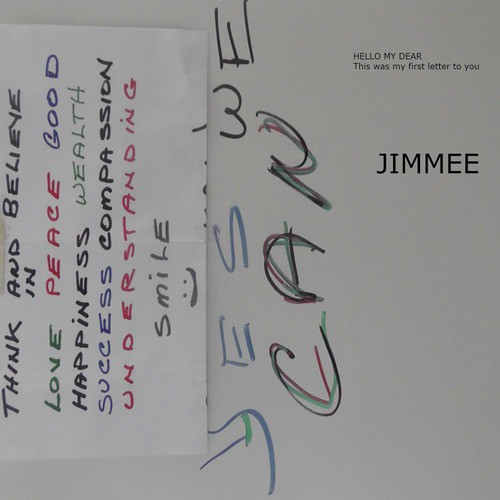 THINK AND BELIEVE
IN
LOVE PEACE GOOD
HAPPINESS WEALTH
SUCCESS COMPASSION
UNDERSTANDING
SMILE
YES WE
CAN
HELLO MY DEAR
This was my first letter to you
JIMMEE